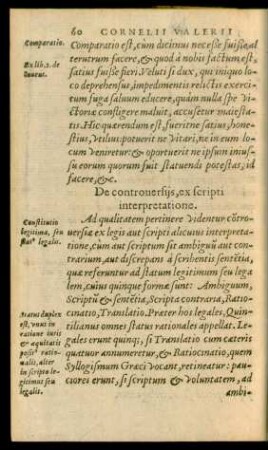 60 CORNELII VALERII
Comparatio.
Comparatio est, cùm dicimus necesse fuisse, al
terutrum facere, & quod à nobis factum est,
Ex lib. 2. de
Inuent.
satius fuisse fieri. Veluti si dux, qui iniquo lo
co deprehensus, impedimentis relictis exerci
tum fuga saluum educere, quàm nulla spe Vi
ctoriæ confligere maluit, accusetur maiesta-
tis. Hîc quærendum est, fueritne satius, hone
stius, Vtilius: potuerit ne Vitari, ne in eum lo
cum Veniretur: & oportuerit ne ipsum iniussu
eorum quorum fuit statuendi potestas, id
facere, &c.
De controuersijs, ex scripti
interpretatione.
Constitutio
legitima, seu
stat⁹ legalis.
Ad qualitatem pertinere Videntur cõtro-
uersiæ ex legis aut scripti alicuius interpreta-
tione, cùm aut scriptum sit ambiguũ aut con-
trarium, aut discrepans à scribentis sentẽtia,
quæ referuntur ad statum legitimum seu lega
lem, cuius quinque formæ sunt: Ambiguum,
Scriptũ & sentẽtia, Scripta contraria, Ratio-
Status duplex
est, vnus in
ratione iuris
& æquitatis
posit⁹ ratio-
nalis, alter
in scripto le-
gitimus seu
legalis.
cinatio, Translatio. Præter hos legales, Quin-
tilianus omnes status rationales appellat. Le-
gales erunt quinq;, si Translatio cum cæteris
quatuor annumeretur, & Ratiocinatio, quem
Syllogismum Græci vocant, retineatur: pau-
ciores erunt, si scriptum & voluntatem, ad
ambi-